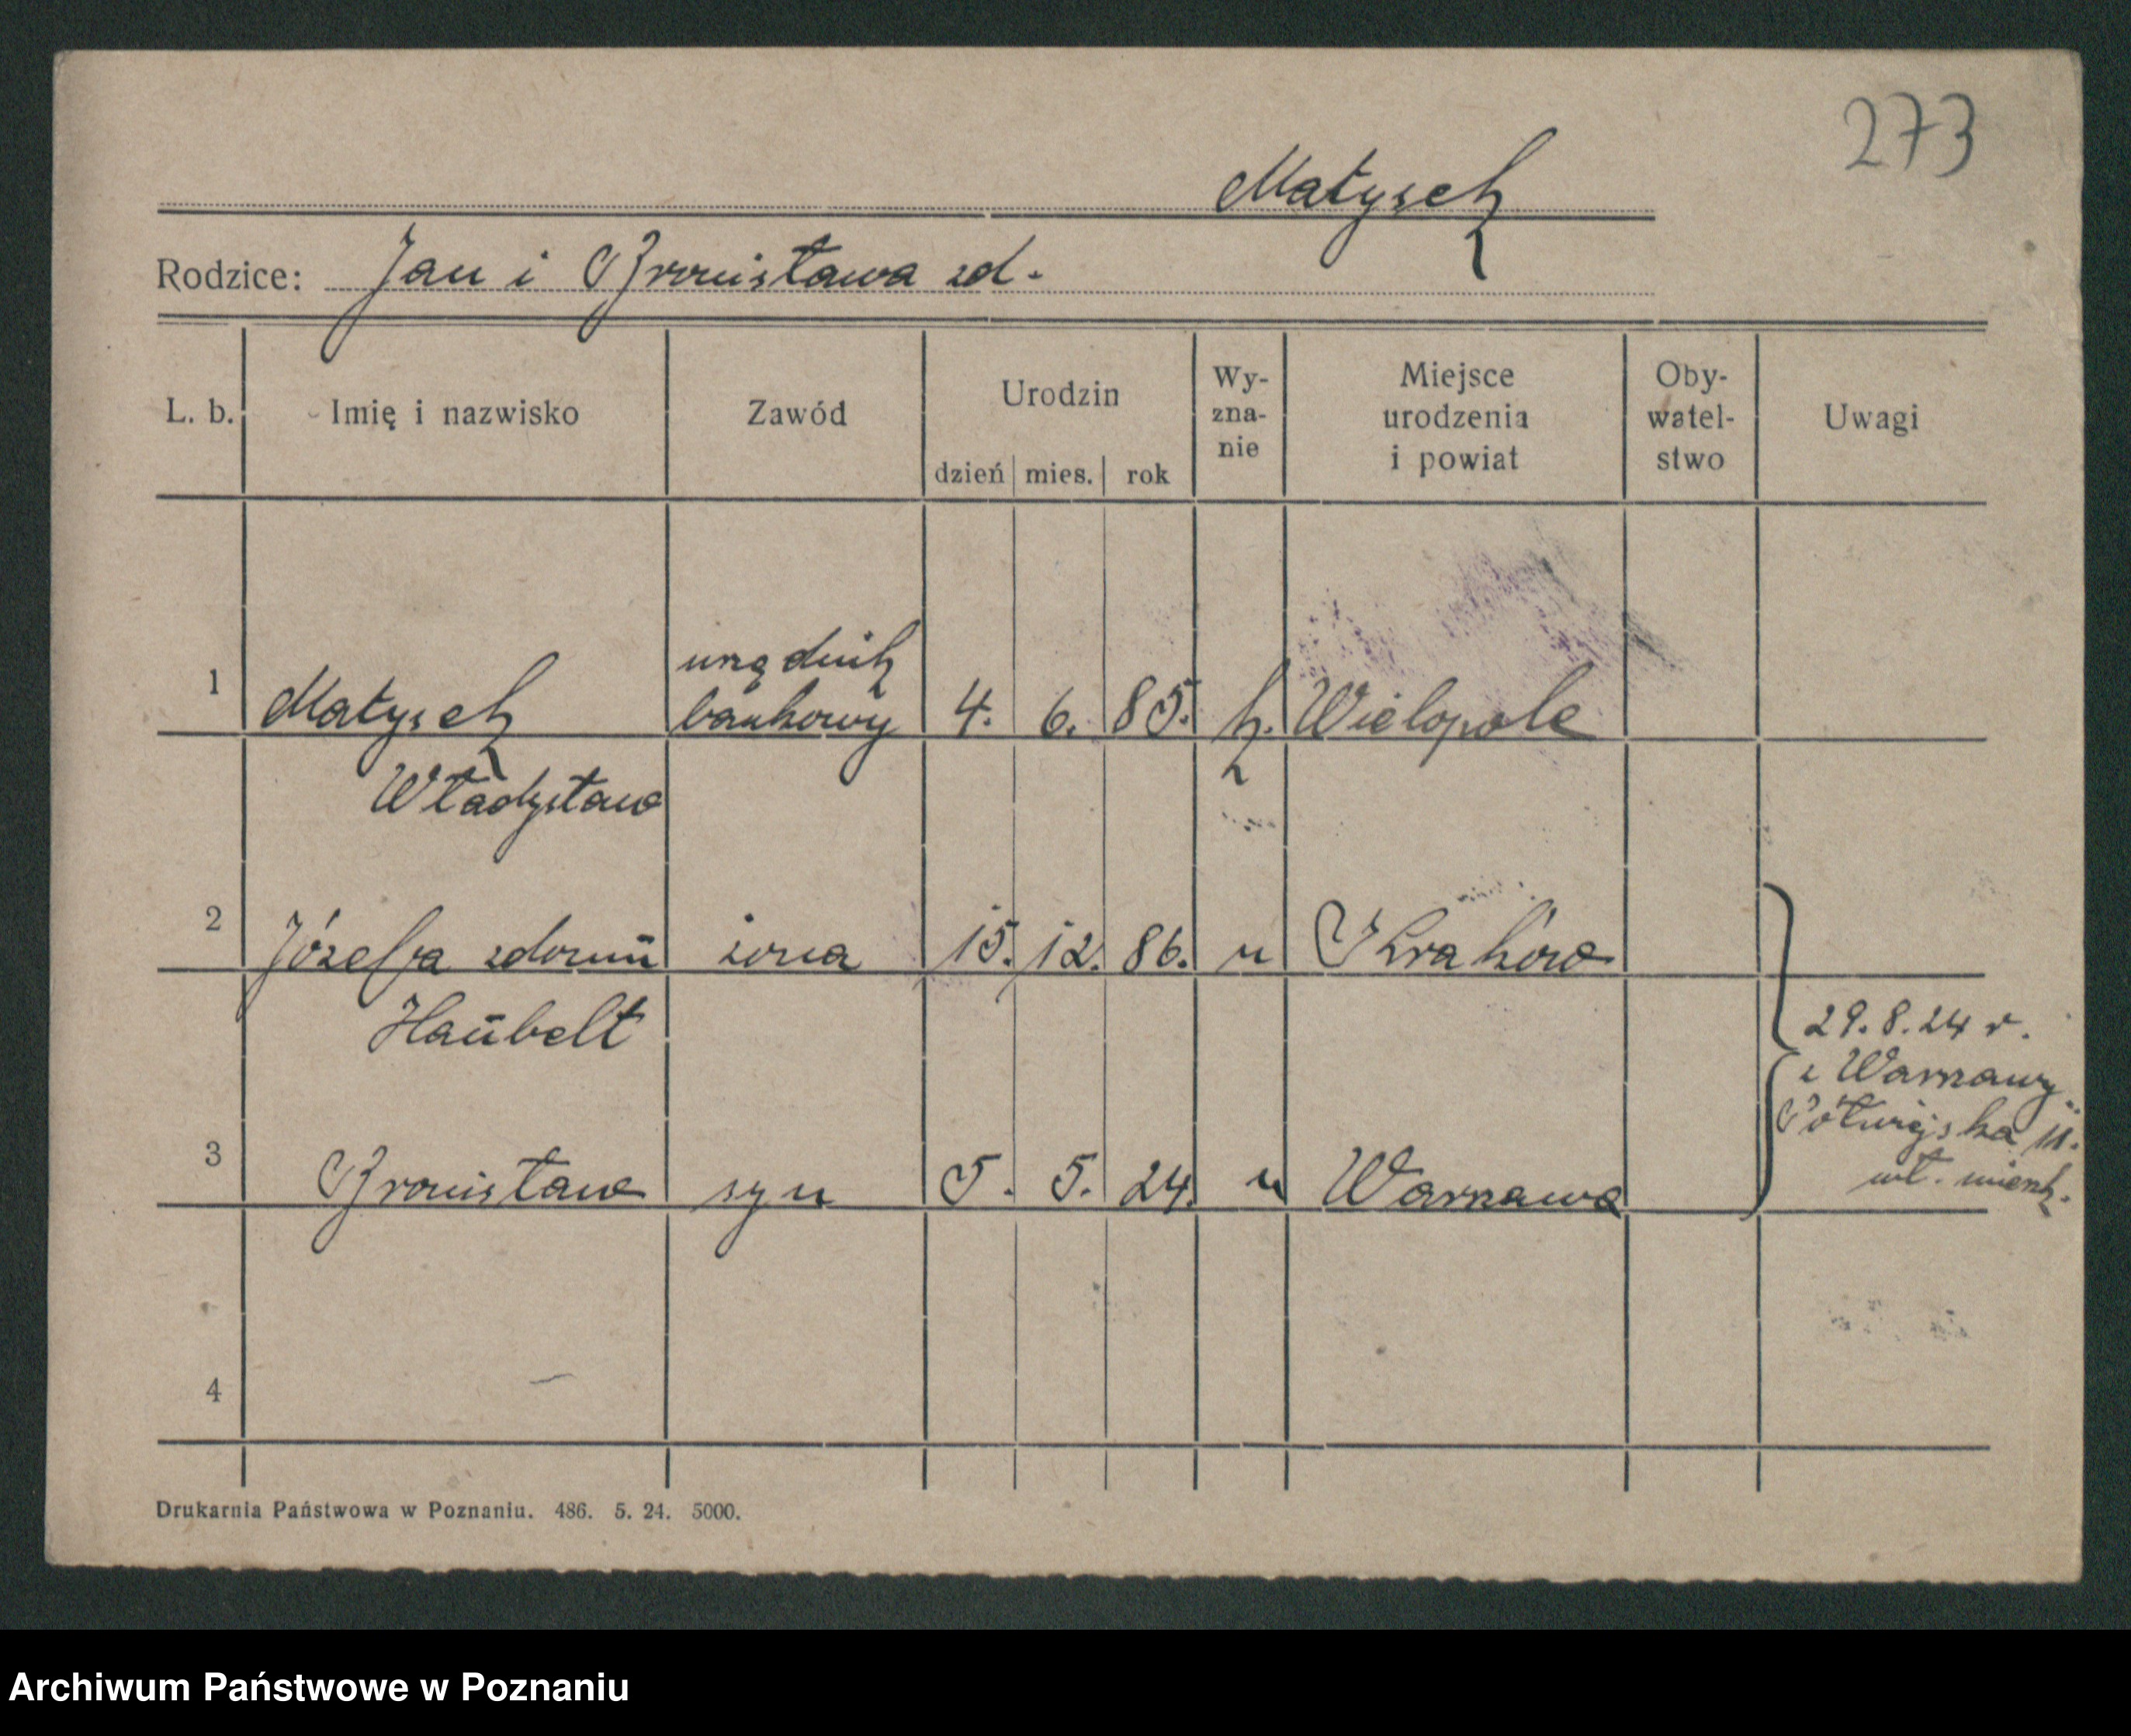 273
Matysek
Rodzice: Jan i Bronisława zd.
L. b. Imię i nazwisko Zawód Urodzin dzień mies. rok Wy-zna-nie Miejsce urodzenia i powiat Oby-watel-stwo Uwagi
1 Matysek urzędnik bankowy 4. 6. 85. k. Wielopole
Władysław
2 Józefa zdomu żona 15. 12. 86. u Kraków
Haubelt
29.8.24 r.
z Warszawy
3 Bronisław syn 5. 5. 24. u Warszawa
wł. mieszk.
4
Drukarnia Państwowa w Poznaniu. 486. 5. 24. 5000.
Archiwum Państwowe w Poznaniu